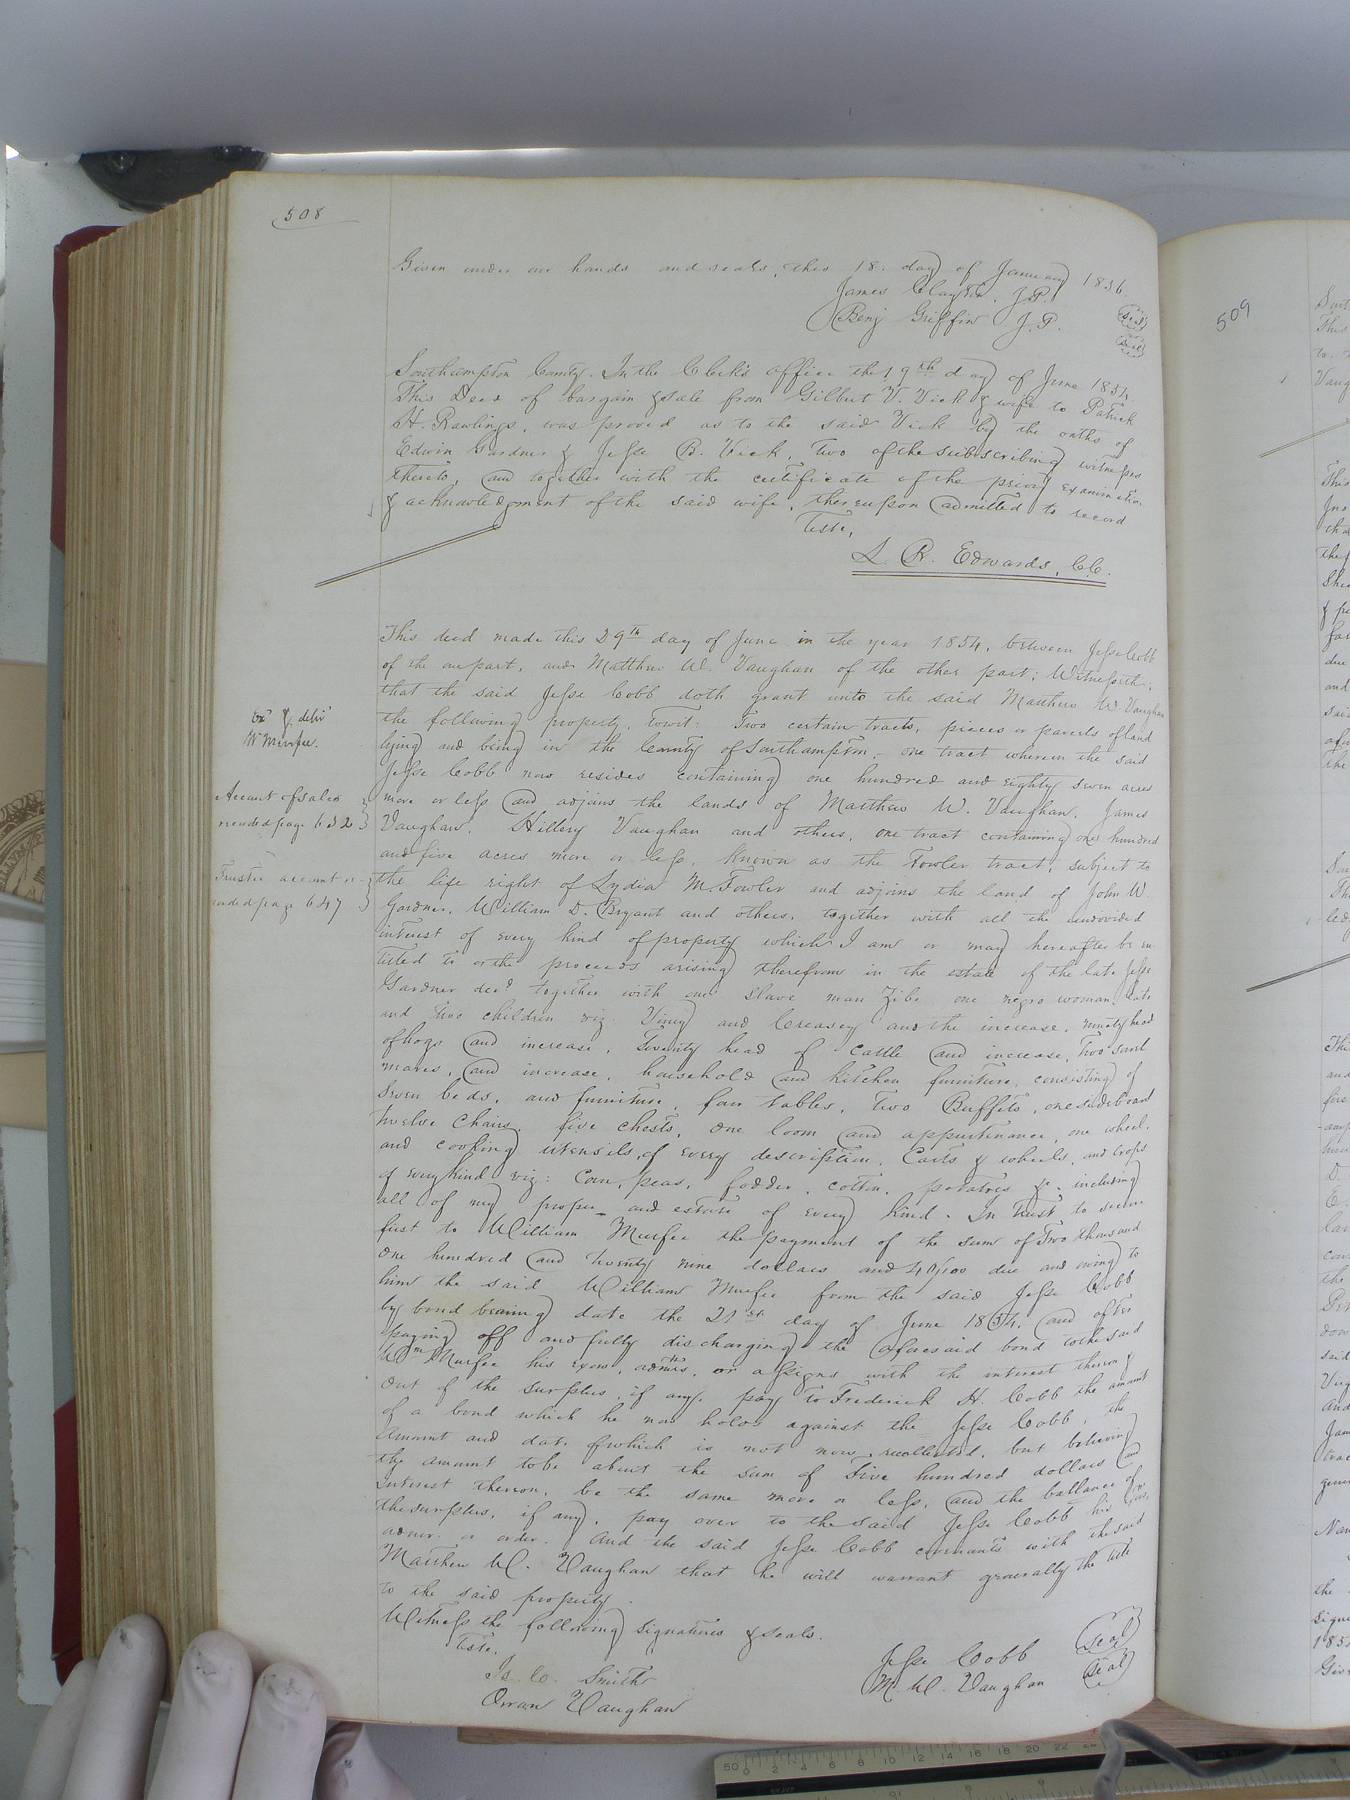 508
Given under our hands and seals, this 18. day of January 1836.
James Clayton. J.P. (Seal)
Benj Griffin J.P. (Seal)
Southampton County. In the Clerk's office the 19th day of June 1854.
This Deed of bargain & sale from Gilbert V. Vick & wife to Patrick
H. Rawlings, was proved as to the said Vick by the oaths of
Edwin Gardner & Jesse B. Vick, two of the subscribing witnesses
thereto, and together with the certificate of the privy examination
& acknowledgment of the said wife, thereupon admitted to record
Teste,
L. R. Edwards, C.C.
This deed made this 29th day of June in the year 1854, between Jesse Cobb
of the one part, and Matthew W. Vaughan of the other part; Witnesseth;
that the said Jesse Cobb doth grant unto the said Matthew W. Vaughan
the following property, towit: Two certain tracts, pieces or parcels of land
lying and being in the County of Southampton, one tract wherein the said
Jesse Cobb now resides containing one hundred and eighty seven acres
more or less and adjoins the lands of Matthew W. Vaughan, James
Vaughan, Hillery Vaughan and others, one tract containing one hundred
and five acres more or less, known as the Fowler tract, subject to
the life right of Lydia M. Fowler and adjoins the land of John W.
Gardner, William D. Bryant and others, together with all the undivided
interest of every kind of property which I am or may hereafter be en
titled to or the proceeds arising therefrom in the estate of the late Jesse
Gardner decd together with one slave man Zibe one negro woman Cate
and two children viz. Viney and Creasey and the increase, ninety head
of hogs and increase, Twenty head of cattle and increase, Two sorrel
mares, and increase, household and kitchen furniture, consisting of
Seven beds, and furniture, four tables, two Buffets, one sideboard
twelve Chairs, five chests, one loom and appurtenance, one wheel,
and cooking utensils, of every description, Carts & wheels, and crops
of every kind viz: Corn, peas, fodder, cotton, potatoes &c. including
all of my proper and estate of every kind. In Trust to secure
first to William Murfee the payment of the sum of Two thousand
One hundred and twenty nine dollars and 40/100 due and owing to
him the said William Murfee from the said Jesse Cobb
by bond bearing date the 21st day of June 1854, and after
paying off and fully discharging the aforesaid bond to the said
Wm Murfee his exors, admrs, or assigns with the interest thereon &
out of the surplus, if any, pay to Frederick H. Cobb the amount
of a bond which he now holds against the Jesse Cobb, the
Amount and date of which is not now recollected, but believing
the amount to be about the sum of Five hundred dollars and
interest thereon, be the same more or less, and the ballance of
the surplus, if any, pay over to the said Jesse Cobb his exor,
admr. or order. And the said Jesse Cobb covenants with the said
Matthew W. Vaughan that he will warrant generally the title
to the said property.
Witness the following signatures & seals.
Teste,
Jesse Cobb (Seal)
Js. C. Smith
M. W. Vaughan (Seal)
Orran Vaughan
Exd & delivd
W Murfee.
Account of sales
recorded page 632
Trustee account re-
corded page 647
509